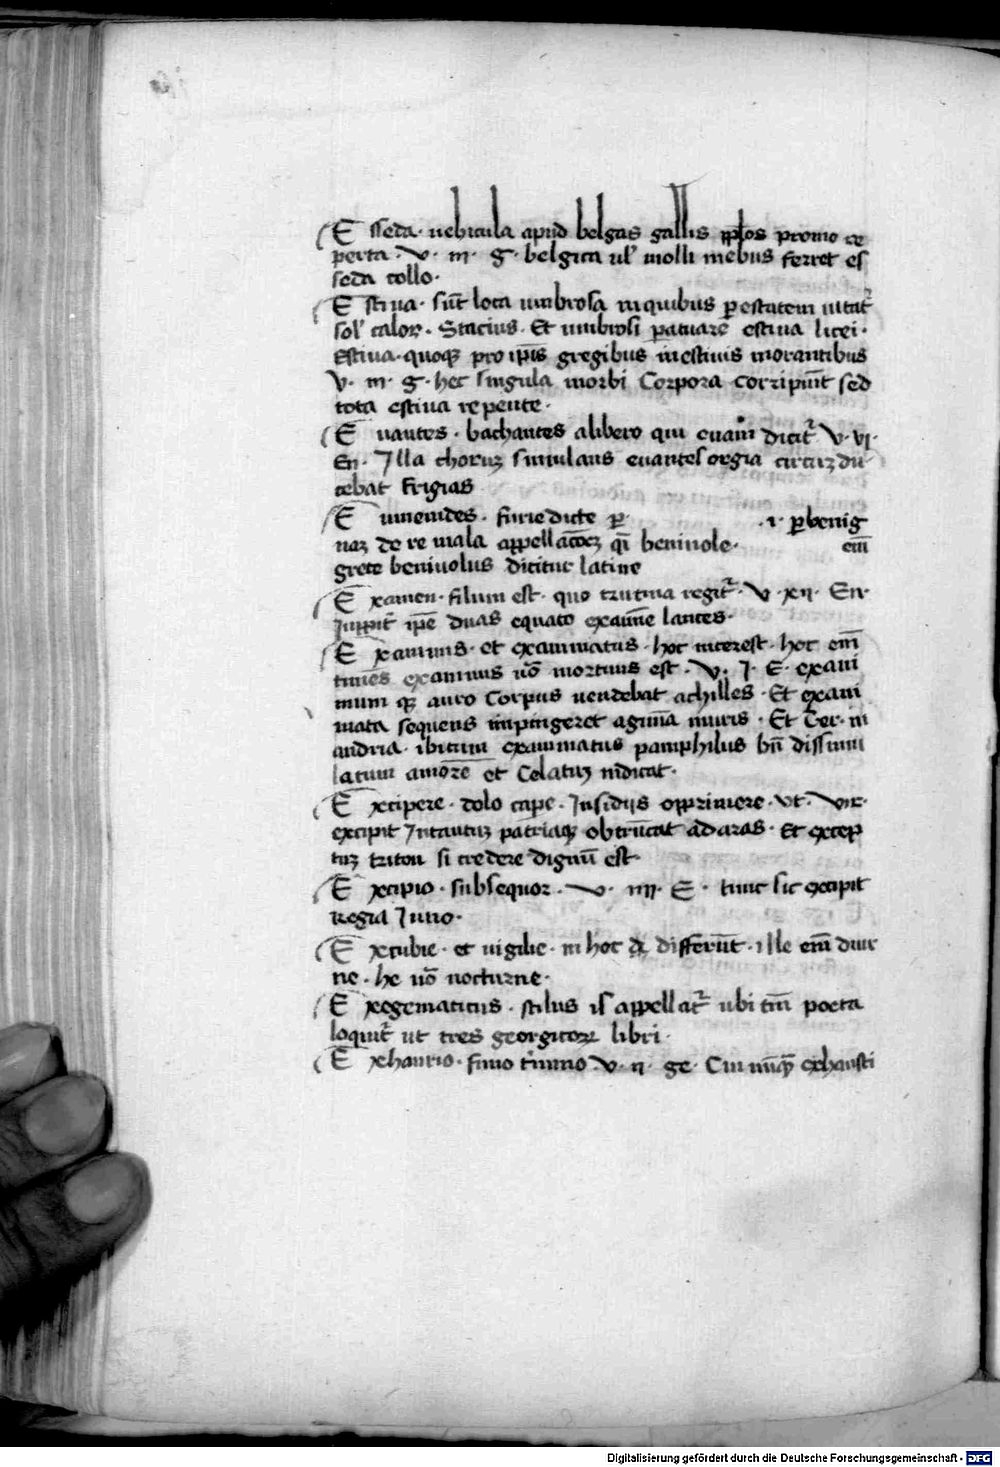 Esseda· uehicula apud belgas gallis ipsos promo re
perta· V· iii· g· belgica ul' molli mebus ferret es
seda collo·
Estiua· sūt loca umbrosa in quibus p estatem uitat͛
sol' calor· Stacius· Et umbrosi patuare estiua licei·
Estiua· quoq pro ip̄is gregibus in estiuis morantibus
V· iii· g· hec singula morbi Corpora corripiūt sed
tota estiua repente·
Euantes· bachantes a libero qui euam dicit͛ V· vi·
En· Illa choruʒ simulans euantes orgia circuʒ du
cebat frigias
Eumenides· furie dicte p ·i· pbenig
naʒ de re mala appellac̄oeʒ qī beniuole· em̄
grece beniuolus dicitur latine
Examen· filum est· quo trutina regit͛· V· xii· En·
Iuppit͛ ip̄e duas equato examine lances·
Exanimis· et exanimatus· hoc interest· hoc em̄
timēs exanimus uō mortuus est· V· I· E· exani
mum qʒ auro Corpus uendebat achilles· Et exani
mata sequens impingeret agmīa muris· Et Ter· in
andria· ibitum exanimatus pamphilus bn̄ dissimu
latum amorē et Celatuʒ indicat·
Excipere· dolo cape· Insidijs opprimere· vt· Vir·
excipit Incautuʒ patriasqʒ obtrūcat ad aras· Et excep
tuʒ triton si credere dignū est·
Excipio· subsequor· V· iiii· E· tunc sic excipit
Regia Iuno·
Excubie· et uigilie· in hoc differūt· ille em̄ diur
ne· he uō nocturne·
Exegematicus· stilus is appellat͛ ubi tm̄ poeta
loquit͛ ut tres georgicoꝝ libri·
Exhaurio· finio t͛mino V· ii· ge· Cui nūqʒ exhausti
Digitalisierung gefördert durch die Deutsche Forschungsgemeinschaft · DFG